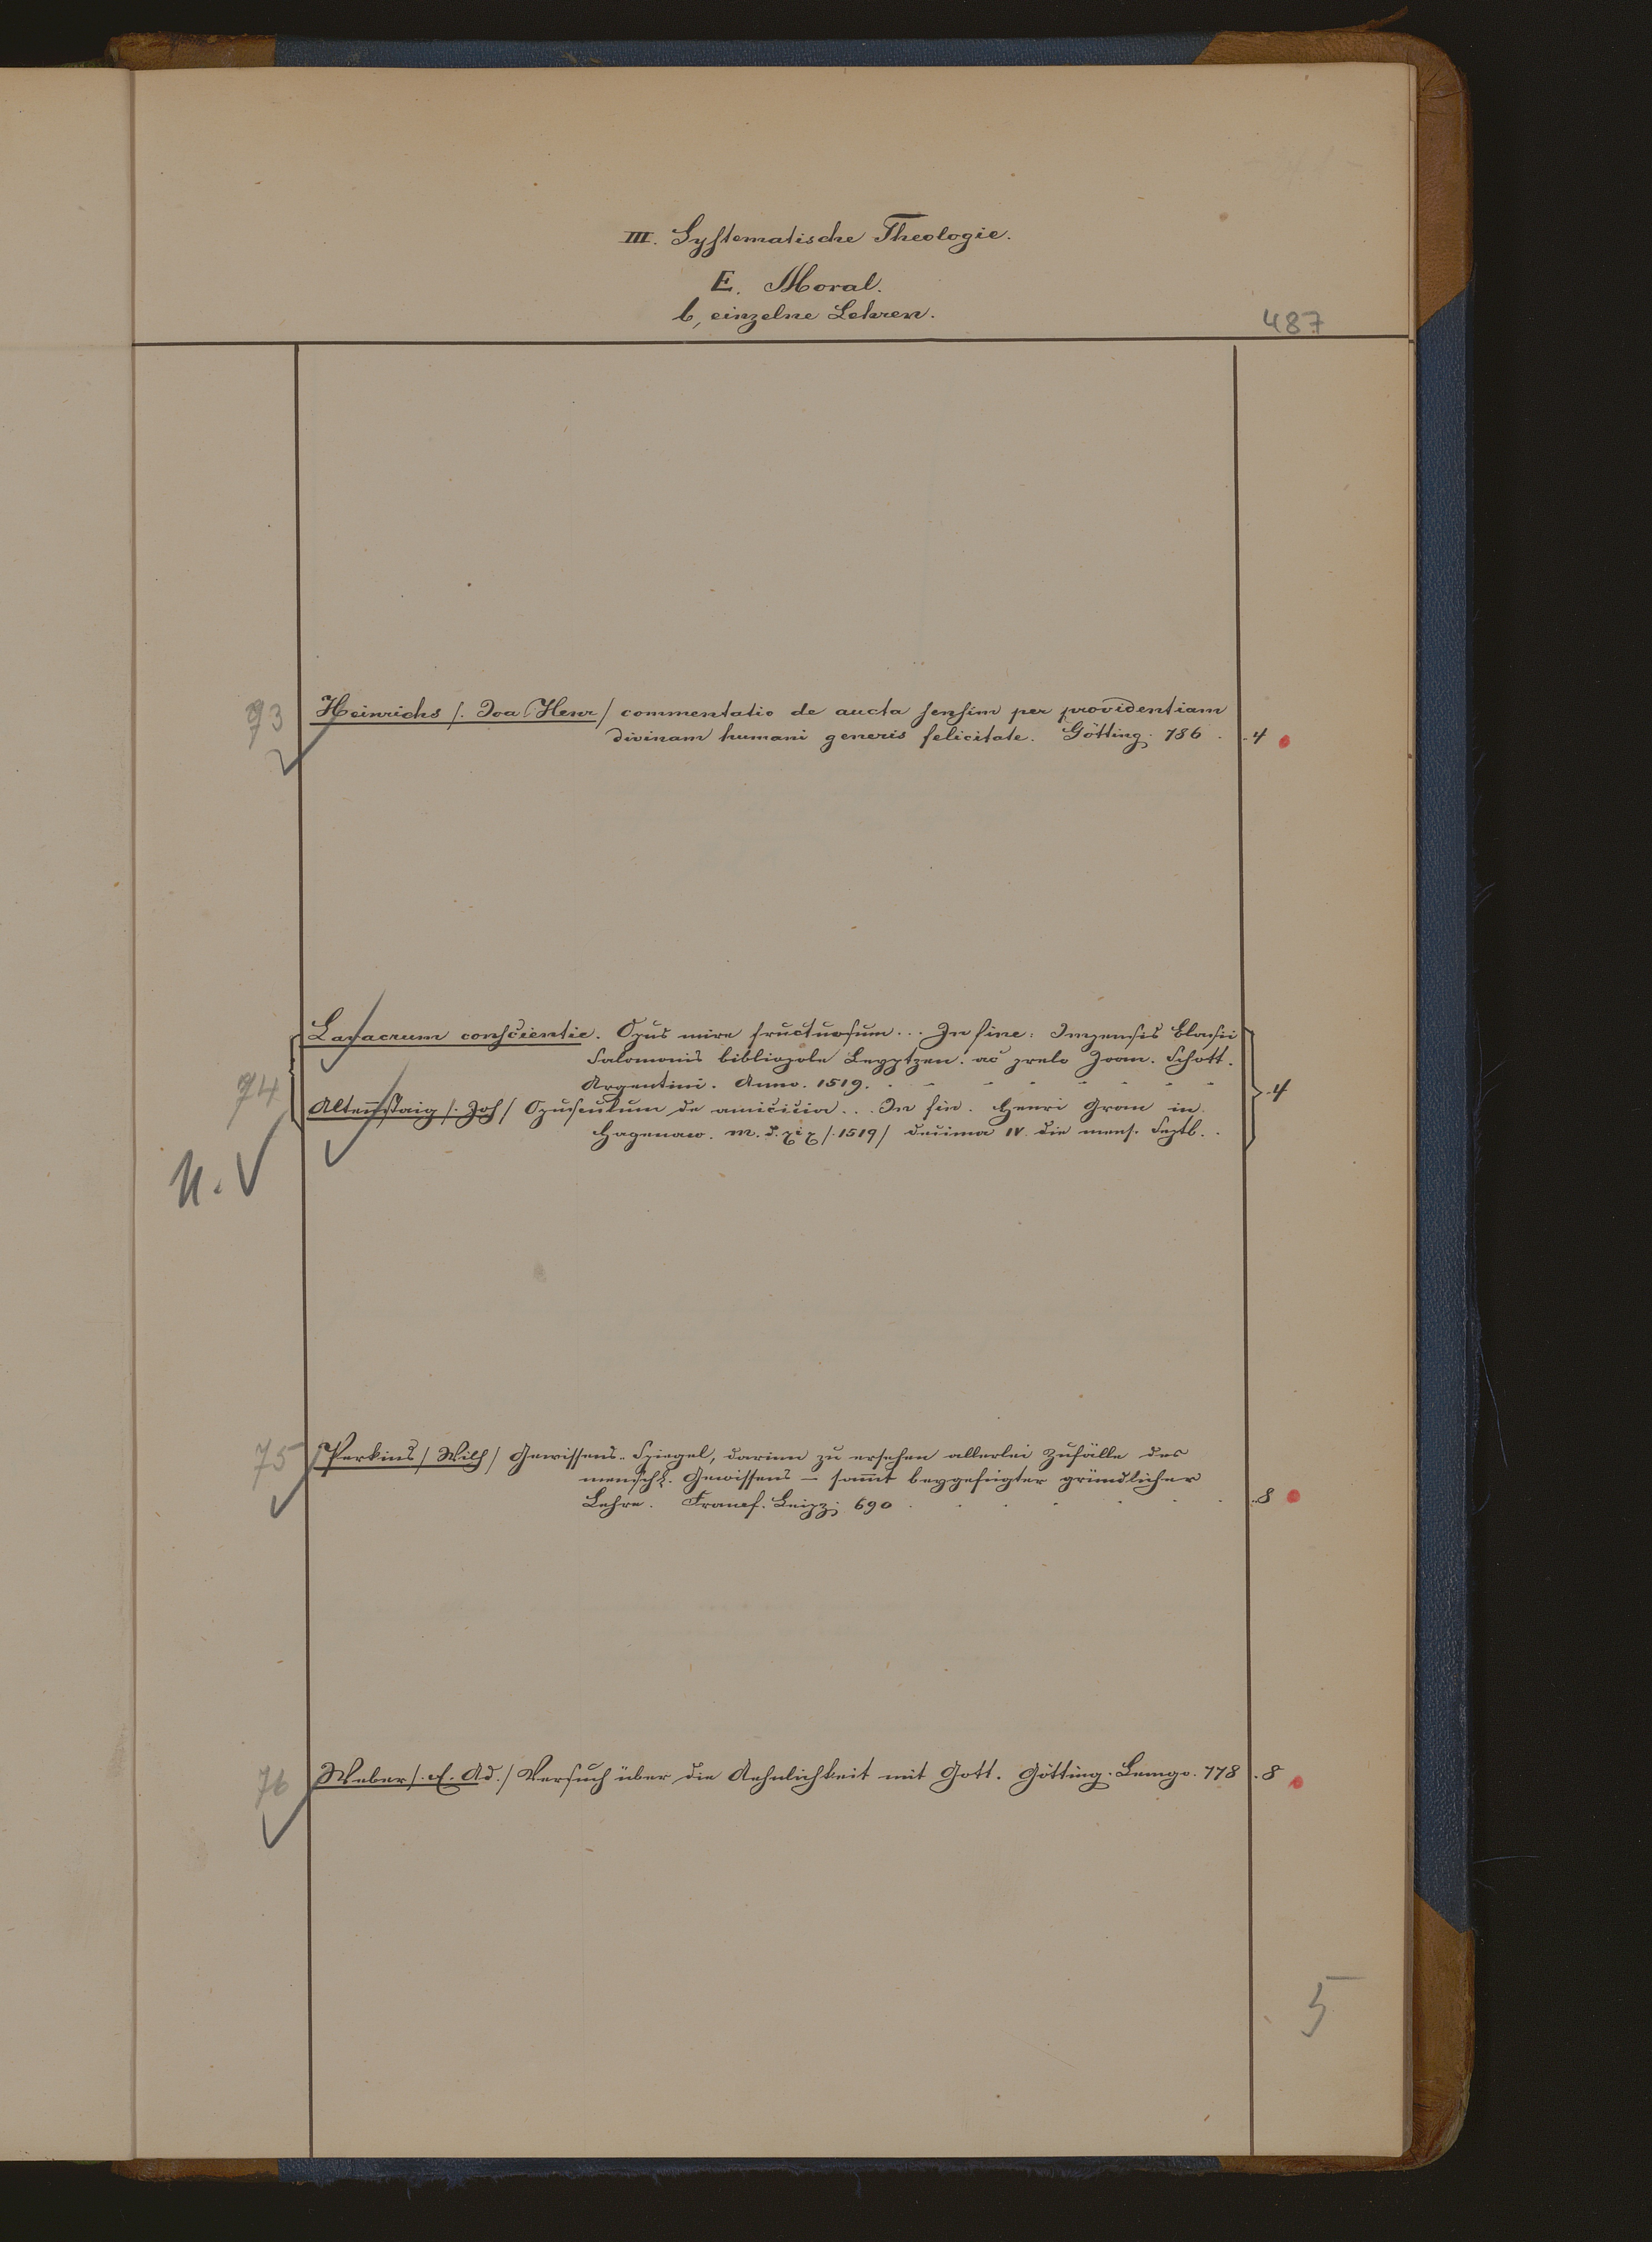 III. Systematische Theologie.
E. Moral.
b, einzelne Lehren.
487
73 Heinrichs /. Joa. Henr / commentatio de aucta sensim per providentiam
divinam humani generis felicitate. Götting. 786 . . 4
74 Lavacrum conscientie. Opus mire fructuosum... In fine: Impensis Blasii
Salomonis bibliopole Leyptzen. ac prelo Joan. Schott.
Argentini. Anno. 1519. . - - - - - - -
4
Altenstaig /. Joh / Opusculum de amicicia... In fin. Henri Gran in
Hagenaw. m. d. xix /. 1519 / decima IV. die mens. Septb. .
n.
75 Perkins / Wilh / Gewissens-Spiegel, darinn zu ersehen allerlei Zufälle des
menschl. Gewissens – sam̄t beygefügter gründlicher
Lehre. Francf. Leipz. 690 . . . . . . . 8
76 Weber /. Ad. / Versuch über die Aehnlichkeit mit Gott. Götting. Lemgo. 778 . 8
5